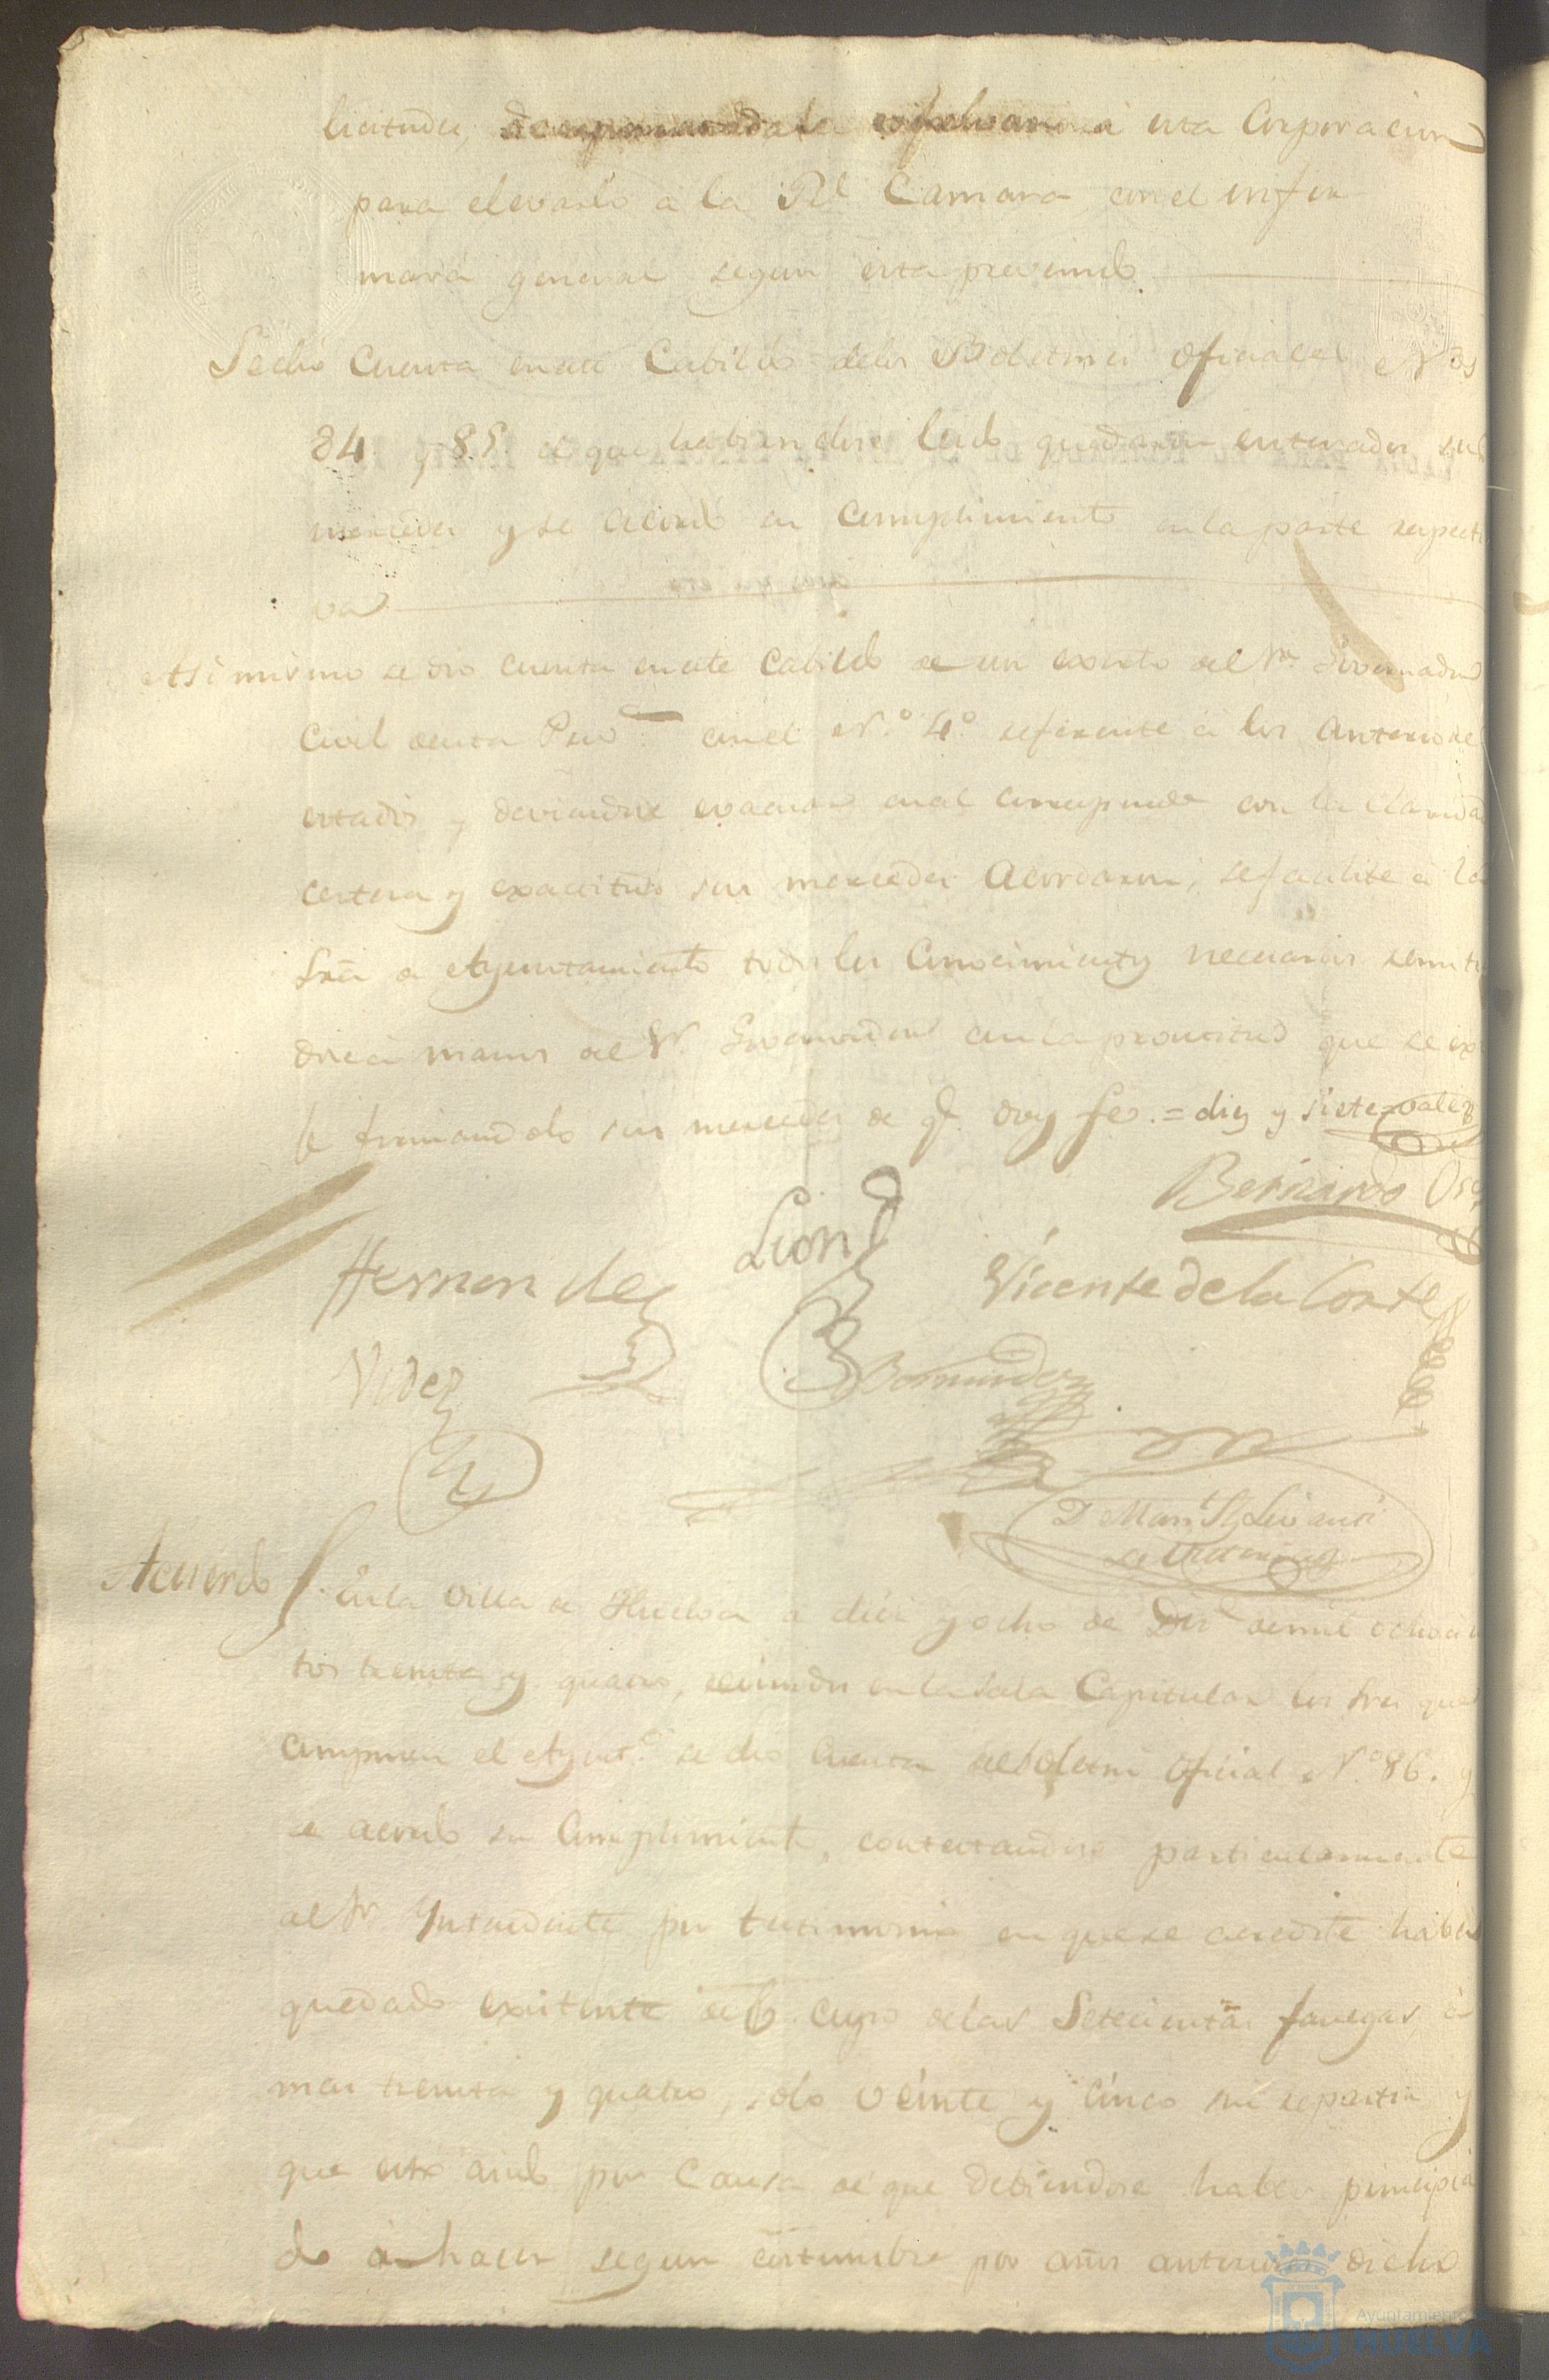 licitudes, esta Corporacion
para elevarlo a la Rl. Camara con el infor
mará general segun esta prevenido.
Se dio cuenta en este Cabildo delos Boletines oficiales Nos
84. y 85. el que habiendose leido quedaron enterados sus
mercedes y se acordó su cumplimiento en la parte respecti
va
Asi mismo se dio cuenta en este Cabildo de un exorto del Sr. Governador
Civil de esta Prova. con el N.º 4.º referente á los anteriores
estados y deviendose evacuar cual corresponde con la claridad
certera y exactitud sus mercedes Acordaron, se facilite á la
Sria de Ayuntamiento todos los conocimientos necesarios remiti
dose á manos del Sr. Governador con la prontitud que se exi
be firmandolo sus mercedes de q. doy fe. = diez y siete = vale =
Bernardo
Hernandez
Leon
Vicente de la Corte
Videz
Bermudez
D. Manl.
Acuerdo
En la villa de Huelva a diez y ocho de Dre. de mil ochocien
tos treinta y quatro, reunidos en la Sala Capitular los Sres que
componen el Ayunto. se dio cuenta del Boletin oficial N.º 86. y
se acordó su cumplimiento, contestandose particularmente
al Sr. Yntendente por testimonio en que se acredite haber
quedado existente del cupo delas Setecientas fanegas
mas treinta y quatro, solo veinte y cinco sin repartir y
que esto ha sido por causa de que deviendose haber principia
do á hacer segun costumbre por años anteriores dicho
Ayuntamiento de
HUELVA